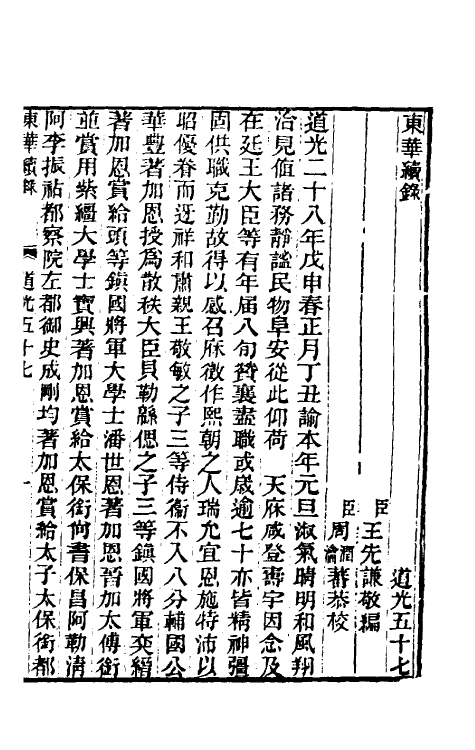 東華續錄
道光五十七
臣王先謙敬編
臣周潤蕃 周瀹蕃恭校
道光二十八年戊申春正月丁丑諭本年元旦淑氣晴明和風翔
洽見值諸務靜謐民物阜安從此仰荷　天庥咸登壽宇因念及
在廷王大臣等有年屆八旬贊襄盡職或歲逾七十亦皆精神彊
固供職克勤故得以感召庥徵作熙朝之人瑞允宜恩施特沛以
昭優眷而迓祥和肅親王敬敏之子三等侍衞不入八分輔國公
華豐著加恩授為散秩大臣貝勒緜偲之子三等鎮國將軍奕縉
著加恩賞給頭等鎮國將軍大學士潘世恩著加恩晉加太傅銜
並賞用紫韁大學士寶興著加恩賞給太保銜尚書保昌阿勒清
阿李振祜都察院左都御史成剛均著加恩賞給太子太保銜都
東華續錄　道光五十七　一